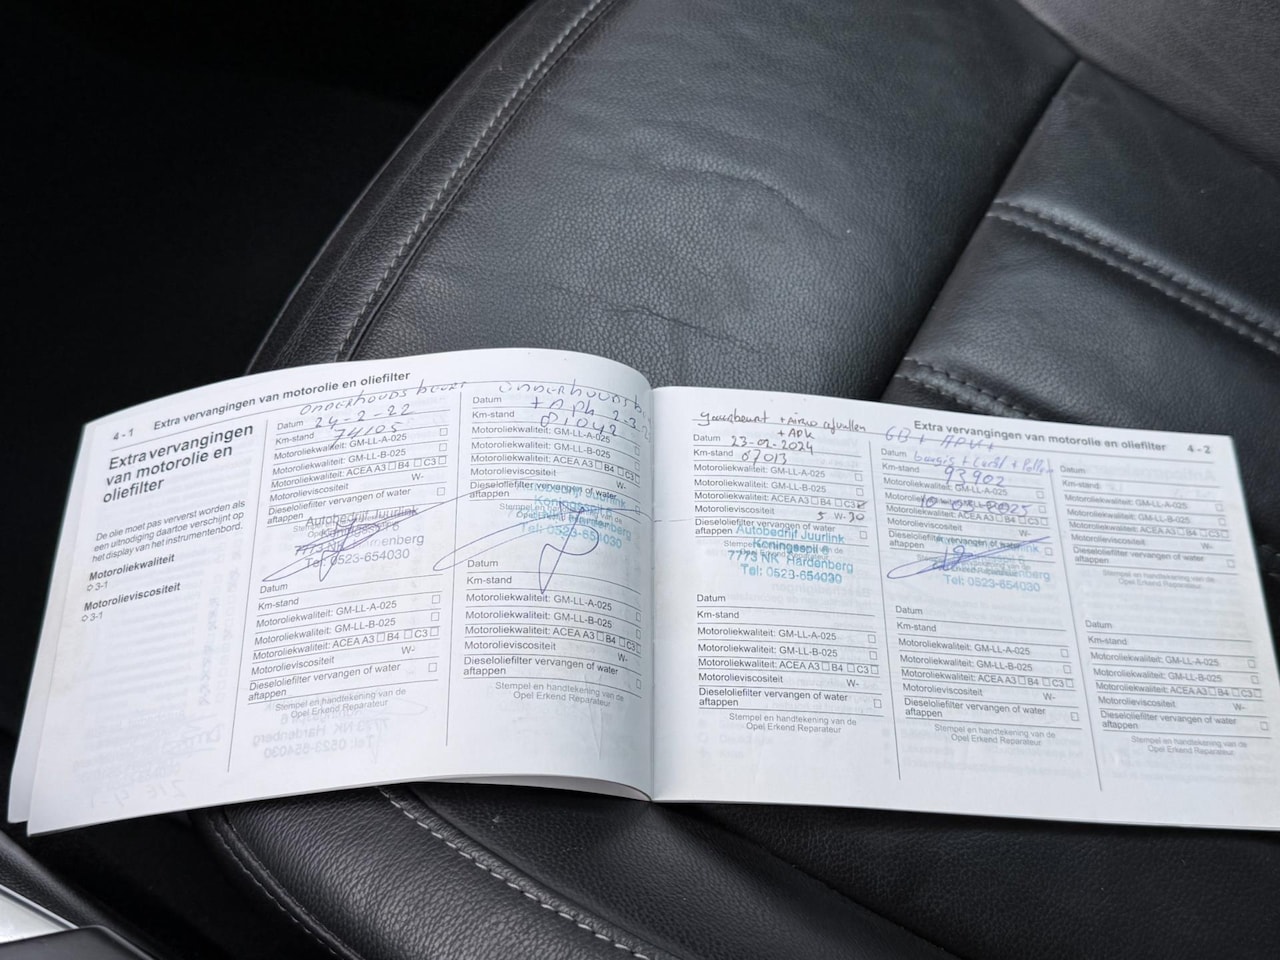 4 - 1 Extra vervangingen van motorolie en oliefilter
Extra vervangingen
van motorolie en
oliefilter
De olie moet pas ververst worden als
een uitnodiging daartoe verschijnt op
het display van het instrumentenbord.
Motoroliekwaliteit
3-1
Motorolieviscositeit
3-1
onderhouds beurt
Datum 24-2-22
Km-stand 74105
Motoroliekwaliteit: GM-LL-A-025
Motoroliekwaliteit: GM-LL-B-025
Motoroliekwaliteit: ACEA A3 B4 C3
Motorolieviscositeit W-
Dieseloliefilter vervangen of water
aftappen
Autobedrijf Juurlink
Tel: 0523-654030
Datum
Km-stand
Motoroliekwaliteit: GM-LL-A-025
Motoroliekwaliteit: GM-LL-B-025
Motoroliekwaliteit: ACEA A3 B4 C3
Motorolieviscositeit W-
Dieseloliefilter vervangen of water
aftappen
Stempel en handtekening van de
Opel Erkend Reparateur
Datum + Apk
Km-stand 81042
Motoroliekwaliteit: GM-LL-A-025
Motoroliekwaliteit: GM-LL-B-025
Motoroliekwaliteit: ACEA A3 B4 C3
Motorolieviscositeit W-
Dieseloliefilter vervangen of water
aftappen
Tel: 0523-654030
Datum
Km-stand
Motoroliekwaliteit: GM-LL-A-025
Motoroliekwaliteit: GM-LL-B-025
Motoroliekwaliteit: ACEA A3 B4 C3
Motorolieviscositeit W-
Dieseloliefilter vervangen of water
aftappen
Stempel en handtekening van de
Opel Erkend Reparateur
Extra vervangingen van motorolie en oliefilter 4 - 2
+ Airco afvullen
+ APK
Datum 23-02-2024
Km-stand 87013
Motoroliekwaliteit: GM-LL-A-025
Motoroliekwaliteit: GM-LL-B-025
Motoroliekwaliteit: ACEA A3 B4 C3
Motorolieviscositeit 5 W-30
Dieseloliefilter vervangen of water
aftappen
Autobedrijf Juurlink
Koningsspil 6
7773 NK Hardenberg
Tel: 0523-654030
Datum
Km-stand
Motoroliekwaliteit: GM-LL-A-025
Motoroliekwaliteit: GM-LL-B-025
Motoroliekwaliteit: ACEA A3 B4 C3
Motorolieviscositeit W-
Dieseloliefilter vervangen of water
aftappen
Stempel en handtekening van de
Opel Erkend Reparateur
GB + APK +
Km-stand 92902
Motoroliekwaliteit: GM-LL-A-025
Motoroliekwaliteit: GM-LL-B-025
10-03-2025
Motoroliekwaliteit: ACEA A3 B4 C3
Motorolieviscositeit W-
Dieseloliefilter vervangen of water
aftappen
Tel: 0523-654030
Datum
Km-stand
Motoroliekwaliteit: GM-LL-A-025
Motoroliekwaliteit: GM-LL-B-025
Motoroliekwaliteit: ACEA A3 B4 C3
Motorolieviscositeit W-
Dieseloliefilter vervangen of water
aftappen
Stempel en handtekening van de
Opel Erkend Reparateur
Datum
Km-stand
Motoroliekwaliteit: GM-LL-A-025
Motoroliekwaliteit: GM-LL-B-025
Motoroliekwaliteit: ACEA A3 B4 C3
Motorolieviscositeit W-
Dieseloliefilter vervangen of water
aftappen
Stempel en handtekening van de
Opel Erkend Reparateur
Datum
Km-stand
Motoroliekwaliteit: GM-LL-A-025
Motoroliekwaliteit: GM-LL-B-025
Motoroliekwaliteit: ACEA A3 B4 C3
Motorolieviscositeit W-
Dieseloliefilter vervangen of water
aftappen
Stempel en handtekening van de
Opel Erkend Reparateur